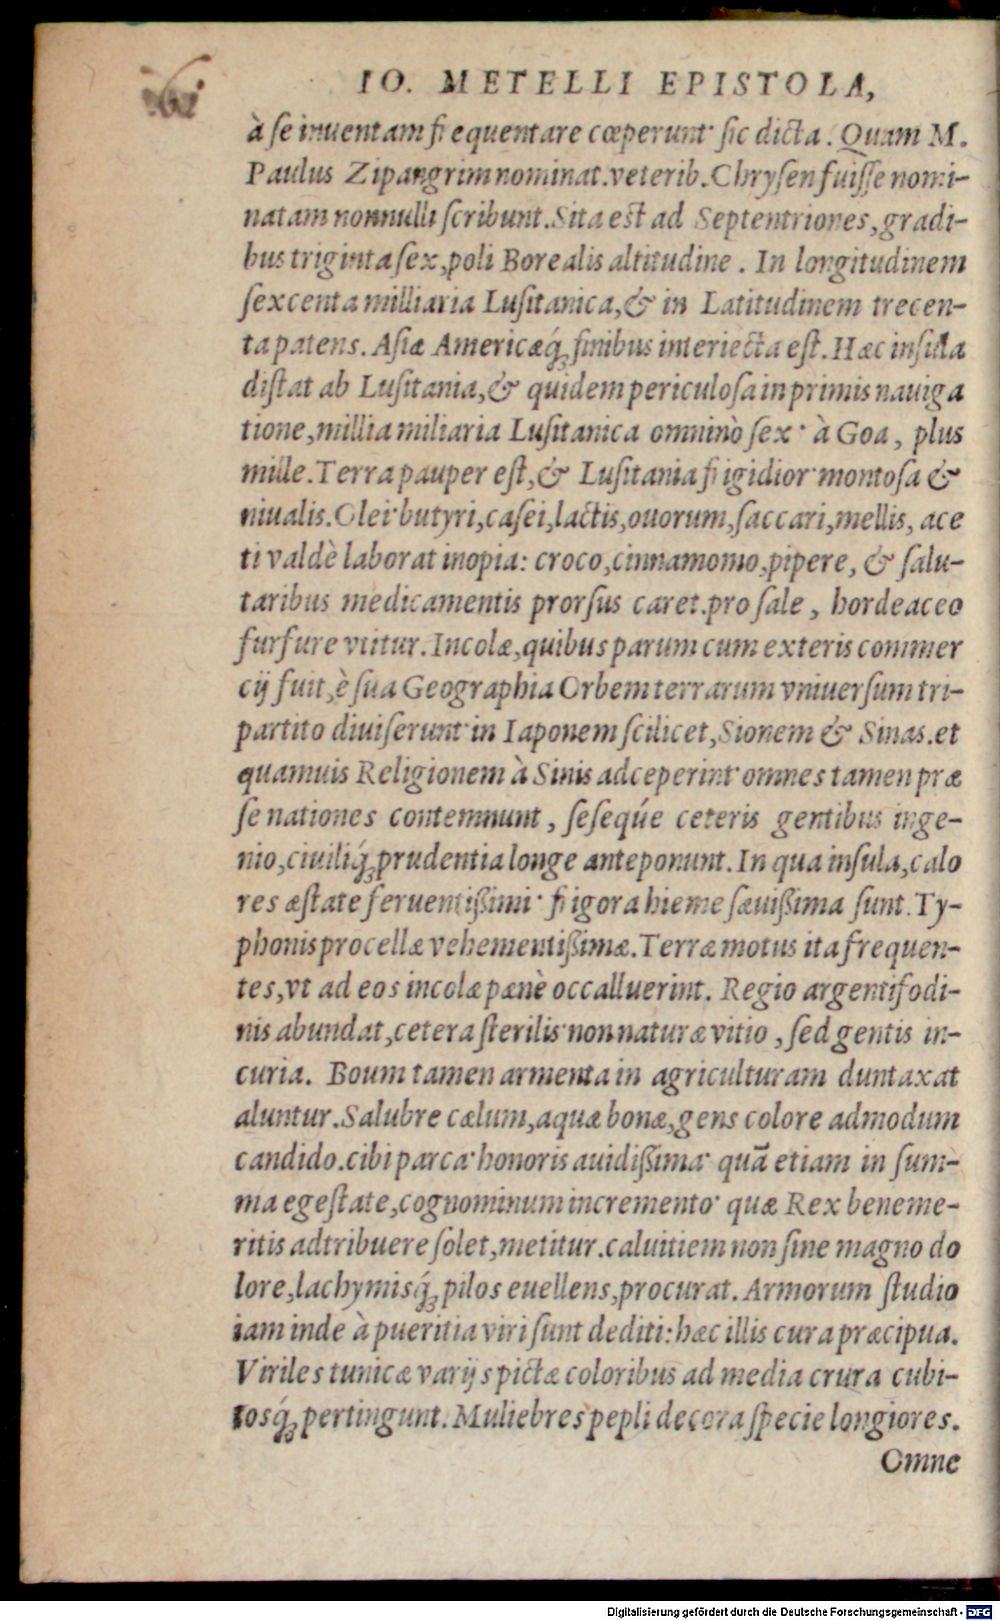 IO. METELLI EPISTOLA,
à se inuentam frequentare cœperunt· sic dicta. Quam M.
Paulus Zipangrim nominat. veterib. Chrysen fuisse nomi-
natam nonnulli scribunt. Sita est ad Septentriones, gradi-
bus triginta sex, poli Borealis altitudine. In longitudinem
sexcenta milliaria Lusitanica, & in Latitudinem trecen-
ta patens. Asiæ Americæq́; finibus interiecta est. Hæc insula
distat ab Lusitania, & quidem periculosa inprimis nauiga
tione, millia miliaria Lusitanica omninò sex· à Goa, plus
mille. Terra pauper est, & Lusitania frigidior· montosa &
niualis. Olei· butyri, casei, lactis, ouorum, saccari, mellis, ace
ti valdè laborat inopia: croco, cinnamomo, pipere, & salu-
taribus medicamentis prorsus caret. pro sale, hordeaceo
furfure vtitur. Incolæ, quibus parum cum exteris commer
cij fuit, è sua Geographia Orbem terrarum vniuersum tri-
partito diuiserunt· in Iaponem scilicet, Sionem & Sinas. et
quamuis Religionem à Sinis adceperint· omnes tamen præ
se nationes contemnunt, seseqúe ceteris gentibus inge-
nio, ciuiliq́; prudentia longe anteponunt. In qua insula, calo
res æstate feruentißimi· frigora hieme sæuißima sunt. Ty-
phonis procellæ vehementißimæ. Terræ motus ita frequen-
tes, vt ad eos incolæ pænè occalluerint. Regio argentifodi-
nis abundat, cetera sterilis· non naturæ vitio, sed gentis in-
curia. Boum tamen armenta in agriculturam duntaxat
aluntur. Salubre cælum, aquæ bonæ, gens colore admodum
candido. cibi parca· honoris auidißima· quā etiam in sum-
ma egestate, cognominum incremento· quæ Rex beneme-
ritis adtribuere solet, metitur. caluitiem non sine magno do
lore, lachymisq́; pilos euellens, procurat. Armorum studio
iam inde à pueritia viri sunt dediti: hæc illis cura præcipua.
Viriles tunicæ varijs pictæ coloribus ad media crura cubi-
tosq́; pertingunt. Muliebres pepli decora specie longiores.
Omne
Digitalisierung gefördert durch die Deutsche Forschungsgemeinschaft - DFG